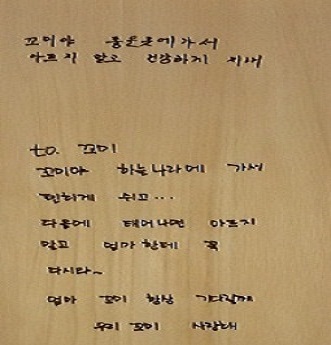 꼬미야 좋은곳에가서
아프지 말고 건강하게 지내
to. 꼬미
꼬미야 하늘나라에 가서
편하게 쉬고...
다음에 태어나면 아프지
말고 엄마한테 꼭
다시와~
엄마 꼬미 항상 기다릴께
우리 꼬미 사랑해